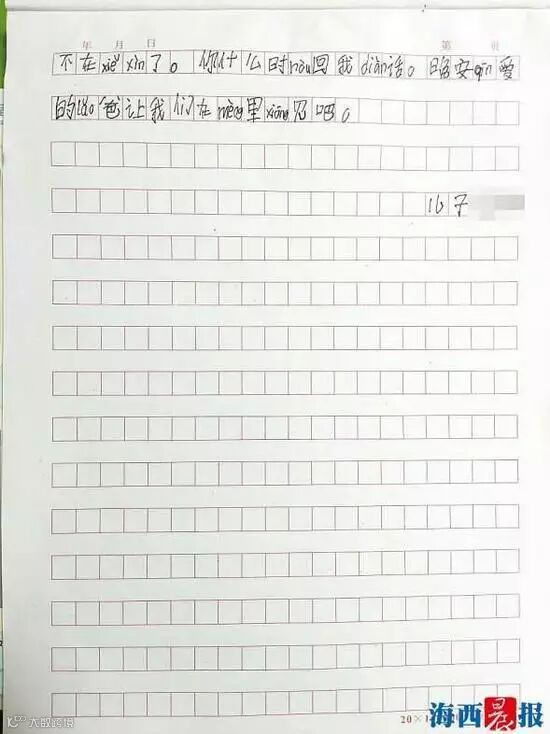 年 月 日 第 班
不在xiě xìn了。你什么时hòu回我diàn话。晚安qīn爱
的bào爸让我们在mèng里xiāng见吧。
儿子
海西晨报
大数跨境